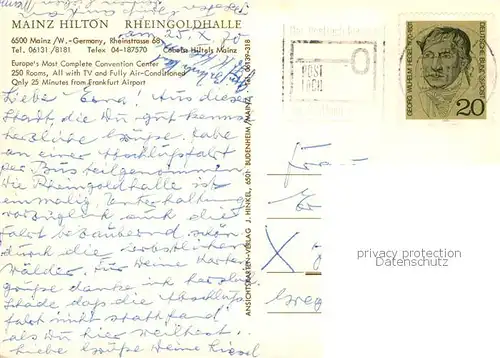 am 25. X. 70
MAINZ HILTON RHEINGOLDHALLE
6500 Mainz/W.-Germany, Rheinstrasse 68
Tel. 06131/8181 Telex 04-187570 Cables Hiltels Mainz
Europe's Most Complete Convention Center
250 Rooms, All with TV and Fully Air-Conditioned
Only 25 Minutes from Frankfurt Airport
Liebe Erna! Aus dieser
Stadt, die Du gut kennst
herzliche Grüße. Habe
an einer Abschlußfahrt
per Bus teilgenommen.
Die Rheingoldhalle ist
einmalig. Unterhaltung
vorzüglich auch die
Fahrt bezaubernd schön
durch die herbstlichen
Wälder. Für Deine Karten
grüße danke ich herzlich.
Schade daß die Abschluß
fahrt nicht stattfand
als Du hier weiltest.
Liebe Grüße Deine Liesel
ANSICHTSKARTEN-VERLAG J. HINKEL, 6501 BUDENHEIM/MAINZ, TEL. 06139-318
POST
GEORG WILHELM HEGEL 1770-1831
DEUTSCHE BUNDESPOST
20
Frau
privacy protection
www.ansichtskartenversand.com